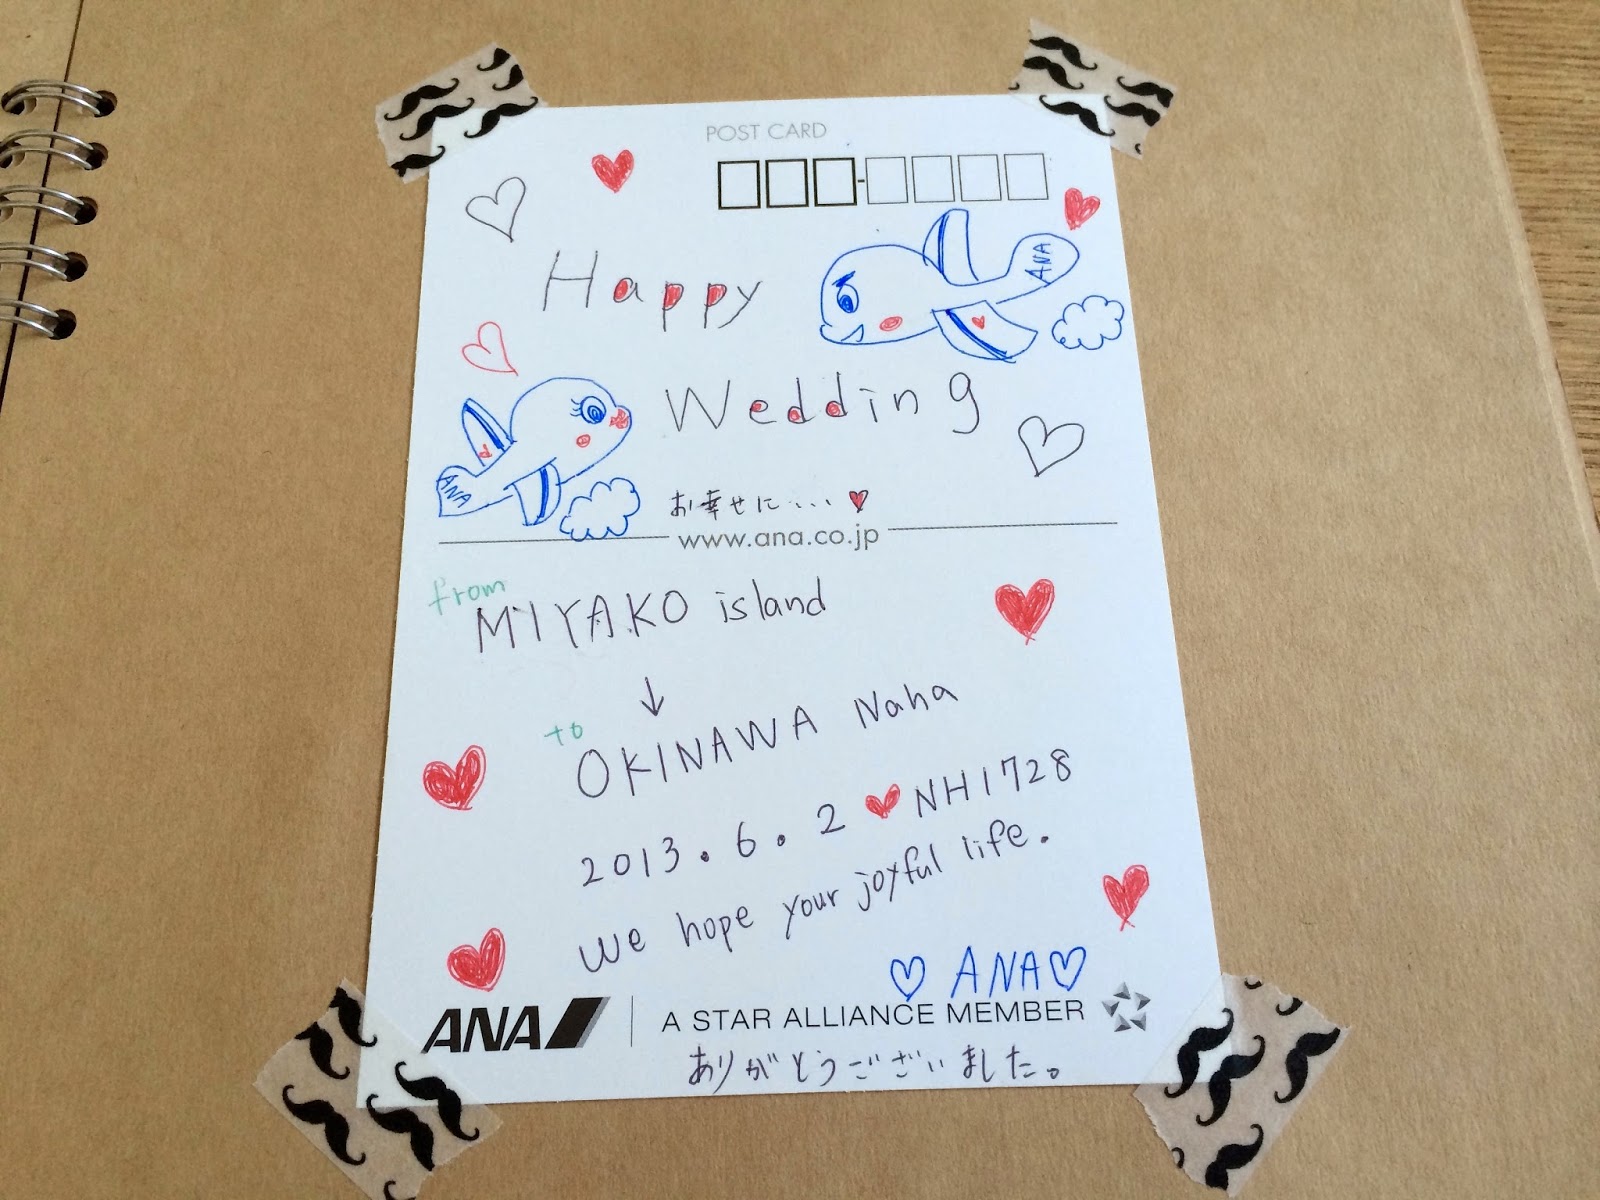 POST CARD
Happy
ANA
Wedding
ANA
お幸せに・・・
www.ana.co.jp
from
MIYAKO island
↓
to
OKINAWA Naha
2013.6.2 ♥ NH1728
We hope your joyful life.
♡ ANA♡
ANA A STAR ALLIANCE MEMBER
ありがとうございました。